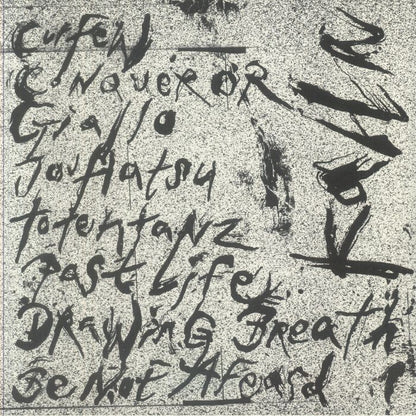 Curfew
Conqueror
Giallo
Jouhatsu
Totentanz
Past Life
Drawing Breath
Be Not Afeard